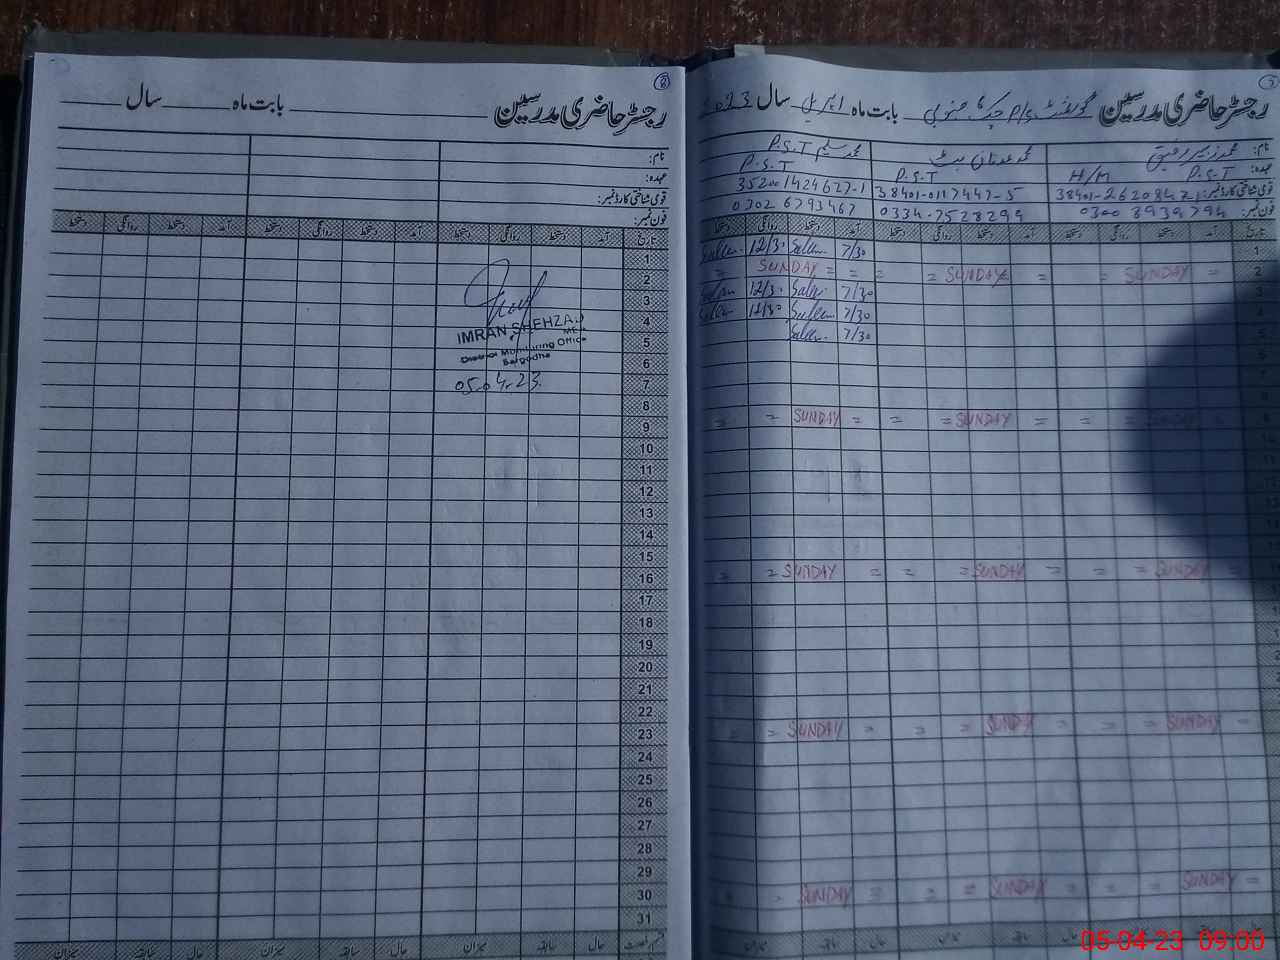 رجسٹر حاضری مدرسین ______ بابت ماہ ______ سال ______
نام:
عہدہ:
قومی شناختی کارڈ نمبر:
فون نمبر:
تاریخ آمد دستخط روانگی دستخط آمد دستخط روانگی دستخط آمد دستخط روانگی دستخط
1
2
3
4
5
6
7
8
9
10
11
12
13
14
15
16
17
18
19
20
21
22
23
24
25
26
27
28
29
30
31
IMRAN SHEHZAD
District Monitoring Office
Sargodha
05.04.23
حال سابقہ میزان حال سابقہ میزان حال سابقہ میزان
رجسٹر حاضری مدرسین گورنمنٹ P/S چک جنوبی بابت ماہ اپریل سال 2023
نام: محمد زبیر رفیق محمد عدنان بٹ محمد سلیم P.S.T
عہدہ: P.S.T H/M P.S.T P.S.T
قومی شناختی کارڈ نمبر: 38401-0117447-5 352001424627-1
فون نمبر: 0300 8939794 0334-7528299 0302 6793467
تاریخ آمد دستخط روانگی دستخط آمد دستخط روانگی دستخط آمد دستخط روانگی دستخط
1 7/30 Saleem 12/30 Saleem
2 = SUNDAY = = SUNDAY = = = SUNDAY =
3 7/30 Saleem 12/30 Saleem
4 7/30 Saleem 12/30 Saleem
5 7/30 Saleem
SUNDAY = = SUNDAY = = = SUNDAY = =
SUNDAY = = = SUNDAY = = = SUNDAY = =
= SUNDAY = = = SUNDAY = = = SUNDAY = =
= SUNDAY = = = SUNDAY = = = SUNDAY
حال سابقہ میزان حال سابقہ میزان
05-04-23 09:00